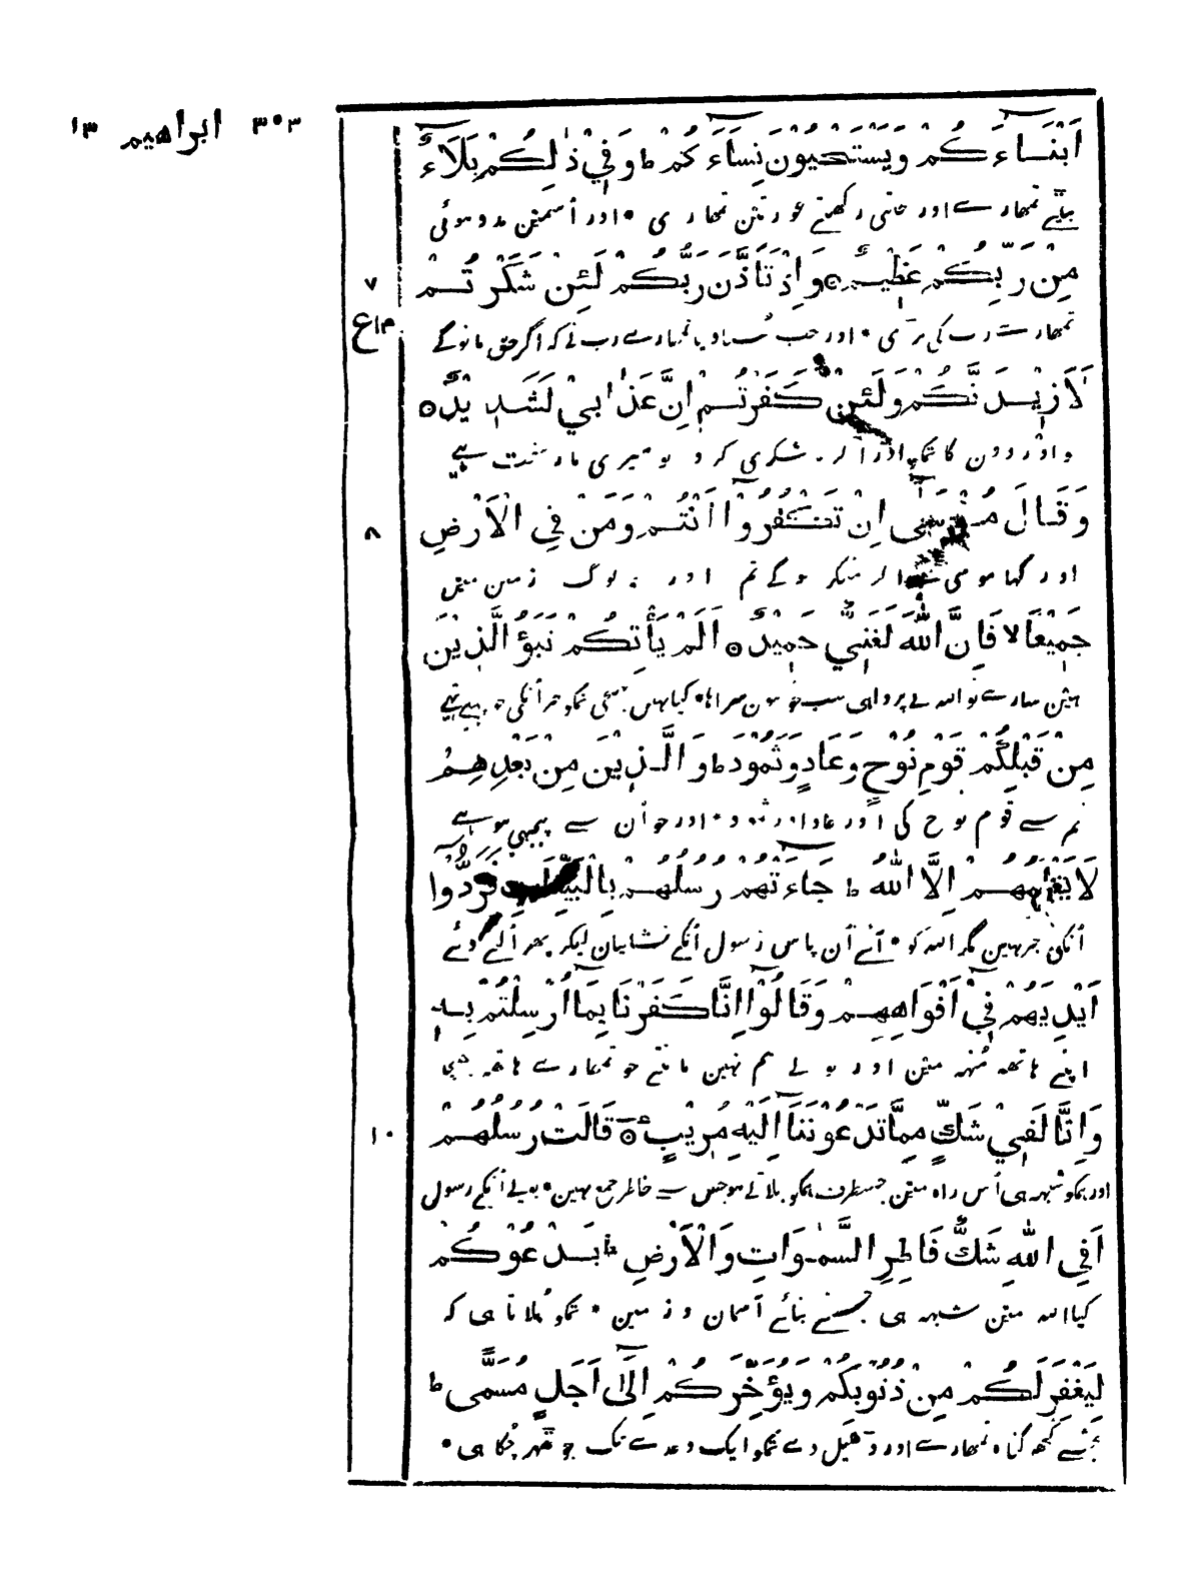 ٣٠٣ ابراهيم ١٣
اَبْنَآءَكُمْ وَيَسْتَحْيُونَ نِسَآءَكُمْ ط وَفِيْ ذٰلِكُمْ بَلَآءٌ
بیٹے تمھارے اور جیتی رکھتے عورتین تمھاری • اور اُسمین مدد ہوئی
مِنْ رَّبِّكُمْ عَظِيْمٌ ۝ وَاِذْ تَاَذَّنَ رَبُّكُمْ لَئِنْ شَكَرْتُمْ
٧
تمھارے رب کی بڑی • اور جب سُنا دیا تمھارے رب نے کہ اگر حق مانوگے
ع ١٤
لَاَزِيْدَنَّكُمْ وَلَئِنْ كَفَرْتُمْ اِنَّ عَذَابِيْ لَشَدِيْدٌ ۝
تو اور دون گا تمکو اور اگر شکری کرو تو میری مار سخت ہے
وَقَالَ مُوْسٰٓى اِنْ تَكْفُرُوْٓا اَنْتُمْ وَمَنْ فِي الْاَرْضِ
٨
اور کہا موسی اگر منکر ہوگے تم اور جو لوگ زمین مین
جَمِيْعًا لا فَاِنَّ اللّٰهَ لَغَنِيٌّ حَمِيْدٌ ۝ اَلَمْ يَأْتِكُمْ نَبَؤُا الَّذِيْنَ
ہین سارے تو الله بے پروا ہی سب خوبیون سراہا • کیا نہین پہنچی تمکو خبر اُنکی جو پہلے تھے
مِنْ قَبْلِكُمْ قَوْمِ نُوْحٍ وَعَادٍ وَثَمُوْدَ ط وَالَّذِيْنَ مِنْ بَعْدِهِمْ
تم سے قوم نوح کی اور عاد اور ثمود • اور جو اُن سے پیچھے ہوئے
لَا يَعْلَمُهُمْ اِلَّا اللّٰهُ ط جَآءَتْهُمْ رُسُلُهُمْ بِالْبَيِّنٰتِ فَرَدُّوْٓا
اُنکی خبر نہین مگر الله کو • آئے اُن پاس رسول اُنکے نشانیان لیکر پھر اُلٹے دئے
اَيْدِيَهُمْ فِيْٓ اَفْوَاهِهِمْ وَقَالُوْٓا اِنَّا كَفَرْنَا بِمَآ اُرْسِلْتُمْ بِهٖ
اپنے ہاتھ مُنہہ مین اور بولے ہم نہین مانتے جو تمھارے ہاتھ بھیجا
وَاِنَّا لَفِيْ شَكٍّ مِمَّا تَدْعُوْنَنَآ اِلَيْهِ مُرِيْبٍ ۝ قَالَتْ رُسُلُهُمْ
١٠
اور ہمکو شبہہ ہی اُس راہ مین جسطرف ہمکو بلاتے ہو جس سے خاطر جمع نہین • بولے اُنکے رسول
اَفِي اللّٰهِ شَكٌّ فَاطِرِ السَّمٰوَاتِ وَالْاَرْضِ ط يَدْعُوْكُمْ
کیا الله مین شبہہ ہی جسنے بنائے آسمان و زمین • تمکو بُلاتا ہی کہ
لِيَغْفِرَ لَكُمْ مِنْ ذُنُوْبِكُمْ وَيُؤَخِّرَكُمْ اِلٰٓى اَجَلٍ مُسَمًّى ط
بخشے کچھ گناہ تمھارے اور ڈھیل دے تمکو ایک وعدے تک جو ٹھہر چُکا ہی •